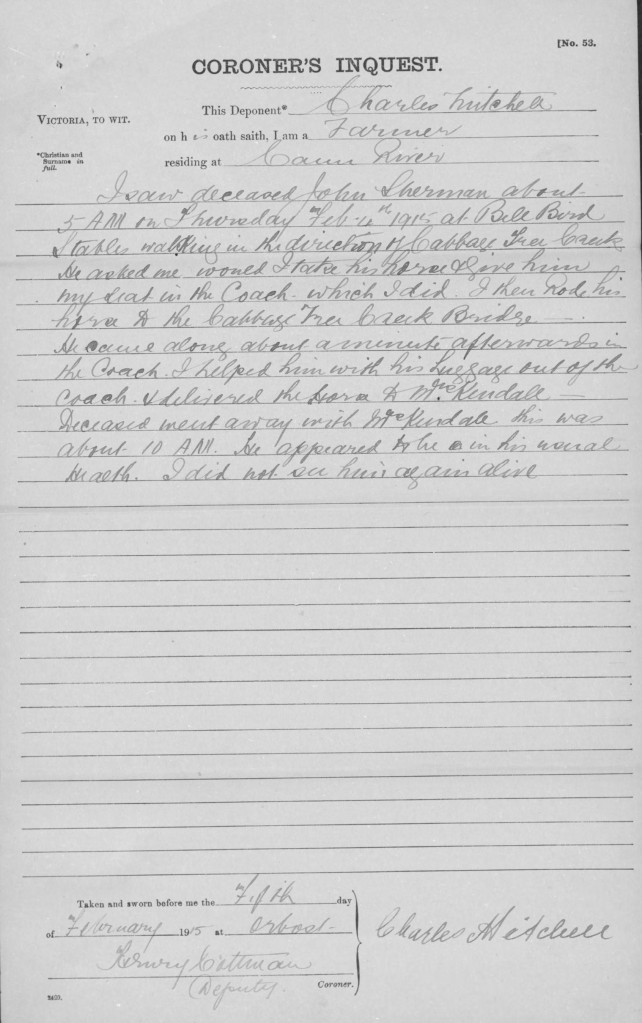 [No. 53.
CORONER'S INQUEST.
VICTORIA, TO WIT.
This Deponent* Charles Mitchell
on his oath saith, I am a Farmer
*Christian and Surname in full.
residing at Cann River
I saw deceased John Sherman about
5 AM on Thursday Feb 4th 1915 at Bell Bird
Stables walking in the direction of Cabbage Tree Creek
He asked me would I take his horse & give him
my seat in the Coach. which I did. I then rode his
horse to the Cabbage Tree Creek Bridge —
He came along about a minute afterwards in
the Coach. I helped him with his Luggage out of the
Coach. & delivered the horse to Kendale —
Deceased went away with Kendale this was
about 10 AM. He appeared to be in his usual
Health. I did not see him again alive
Taken and sworn before me the Fifth day
of February 1915 at Orbost
Charles Mitchell
Henry Cottman
(Deputy. Coroner.
2420.